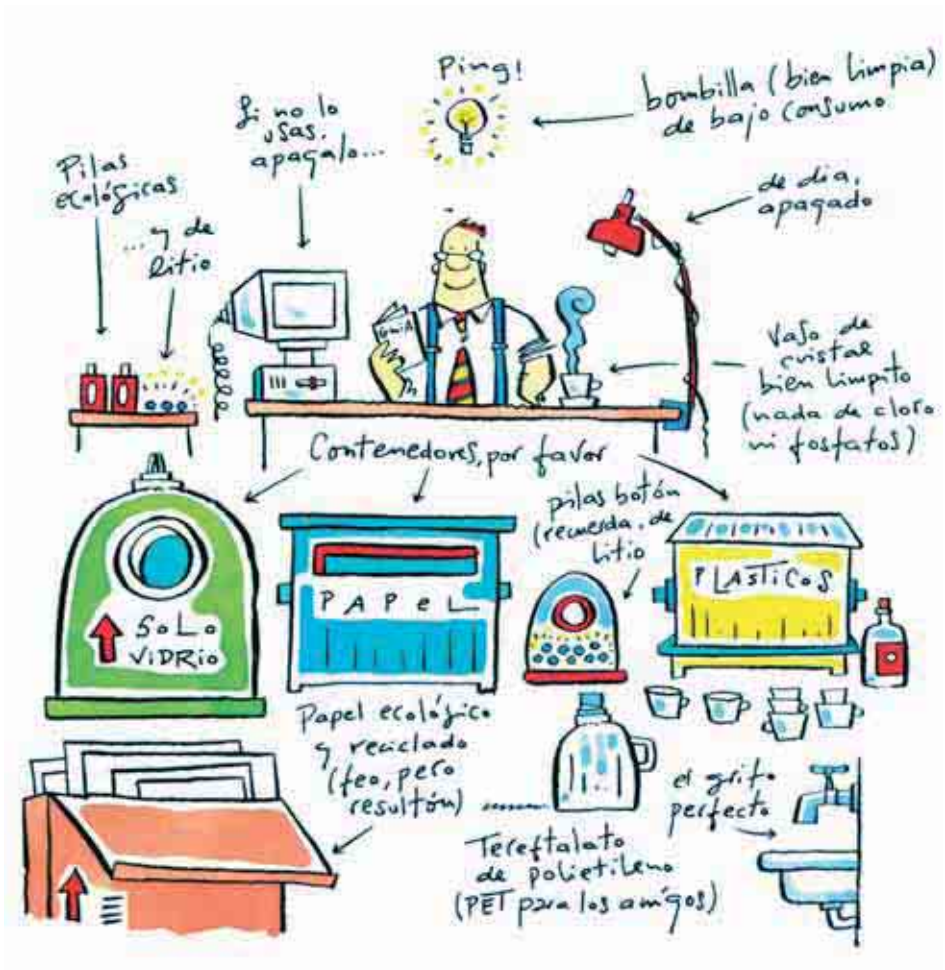 Ping!
bombilla (bien limpia)
de bajo consumo
Si no lo
usas,
apagalo...
Pilas
ecológicas
... y de
litio
de dia,
apagado
GUIA
Vaso de
cristal
bien limpito
(nada de cloro
ni fosfatos)
Contenedores, por favor
pilas botón
(recuerda, de
litio
SOLO
ViDRio
PAPeL
PLASTiCoS
Papel ecológico
y reciclado
(feo, pero
resultón)
el grifo
perfecto
Tereftalato
de polietileno
(PET para los amigos)